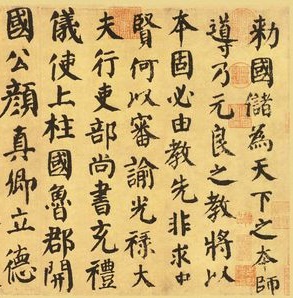 勑國儲為天下之本師
導乃元良之教將以
本固必由教先非求中
賢何以審諭光祿大
夫行吏部尚書充禮
儀使上柱國魯郡開
國公顏真卿立德